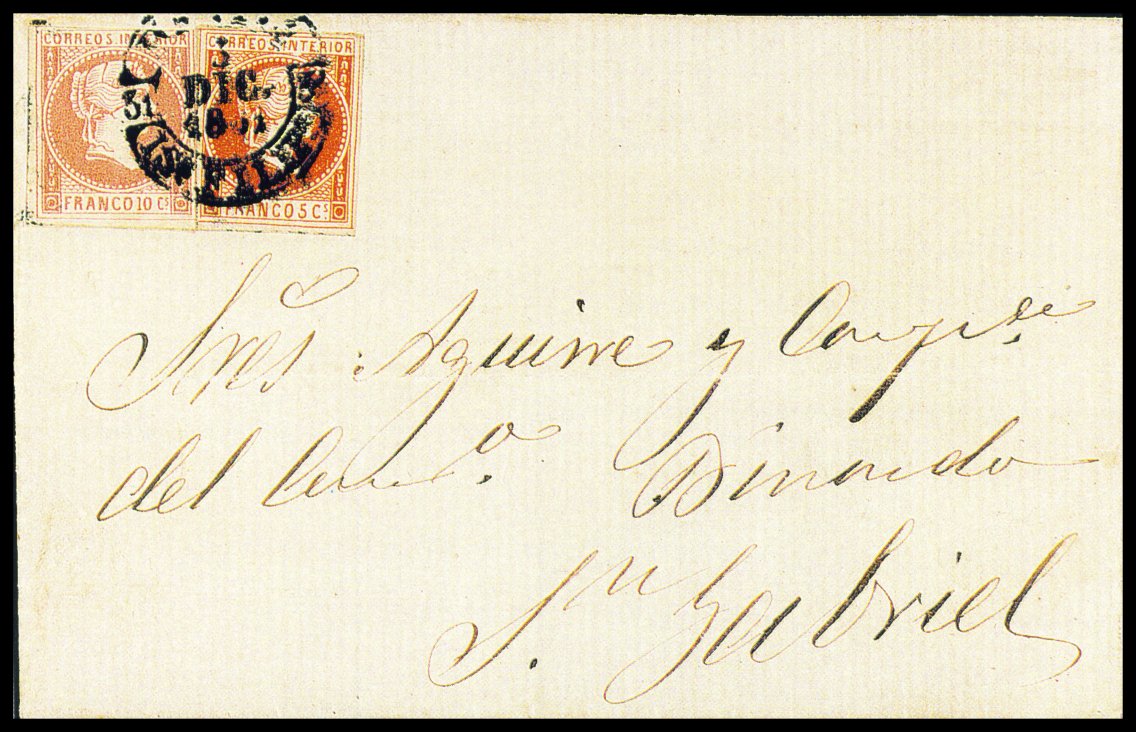 CORREOS. INTERIOR
FRANCO 10 Cs
CORREOS. INTERIOR
FRANCO 5 Cs.
3
DIC.
31
Sres Aguirre y Comp.
del Com.o
Binondo
Sn Gabriel